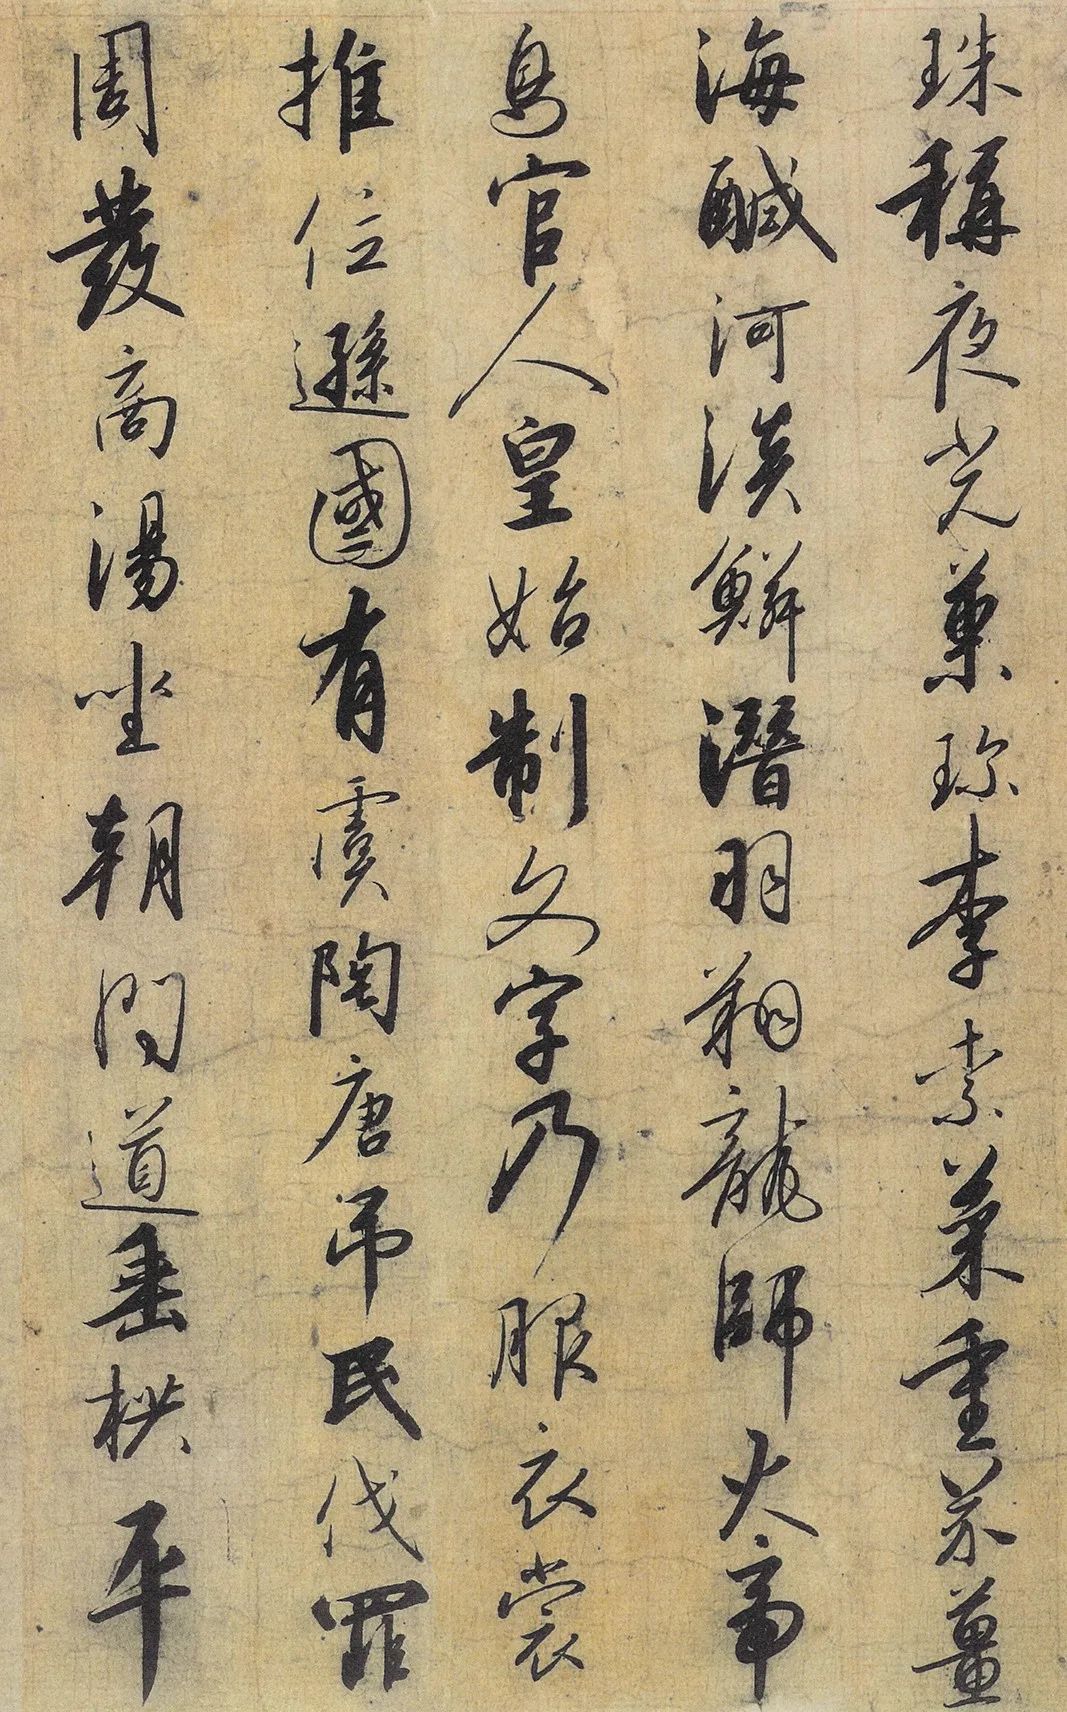 珠稱夜光菓珍李柰菜重芥薑
海醎河淡鱗潛羽翔龍師火帝
鳥官人皇始制文字乃服衣裳
推位遜國有虞陶唐弔民伐罪
周發商湯坐朝問道垂拱平